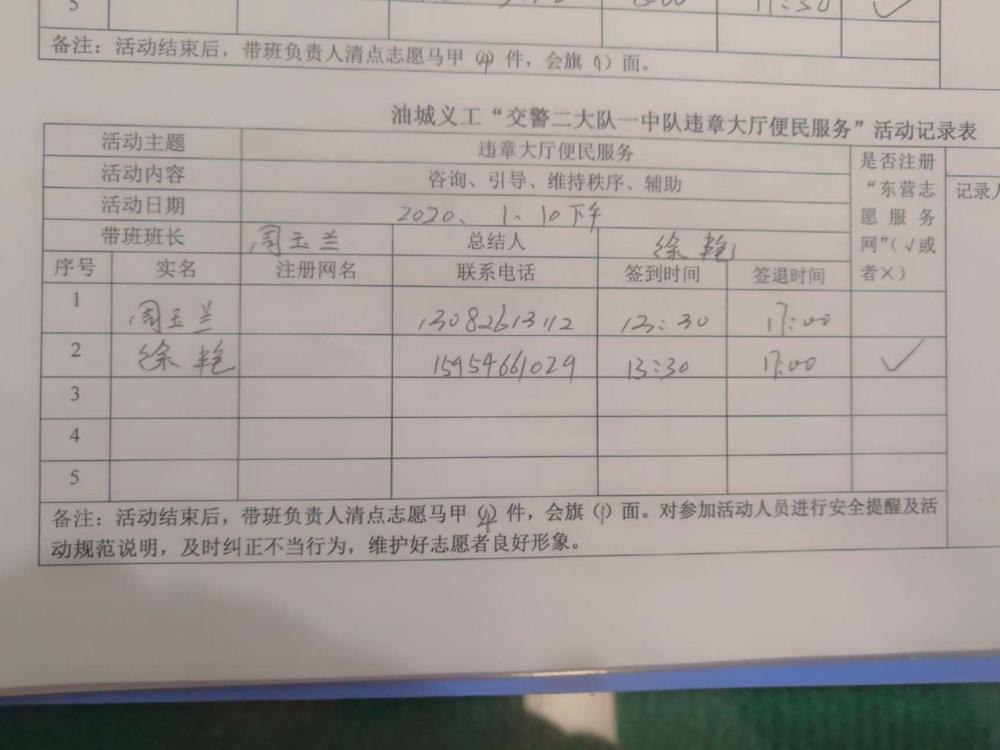 5 17:30 ✓
备注：活动结束后，带班负责人清点志愿马甲（4）件，会旗（1）面。
油城义工“交警二大队一中队违章大厅便民服务”活动记录表
活动主题 违章大厅便民服务
活动内容 咨询、引导、维持秩序、辅助
活动日期 2020、1、10下午
带班班长 周玉兰 总结人 徐艳
是否注册“东营志愿服务网”（√或者×）
记录人
序号 实名 注册网名 联系电话 签到时间 签退时间
1 周玉兰 13082613112 13:30 17:00
2 徐艳 15954661029 13:30 17:00 ✓
3
4
5
备注：活动结束后，带班负责人清点志愿马甲（4）件，会旗（1）面。对参加活动人员进行安全提醒及活
动规范说明，及时纠正不当行为，维护好志愿者良好形象。